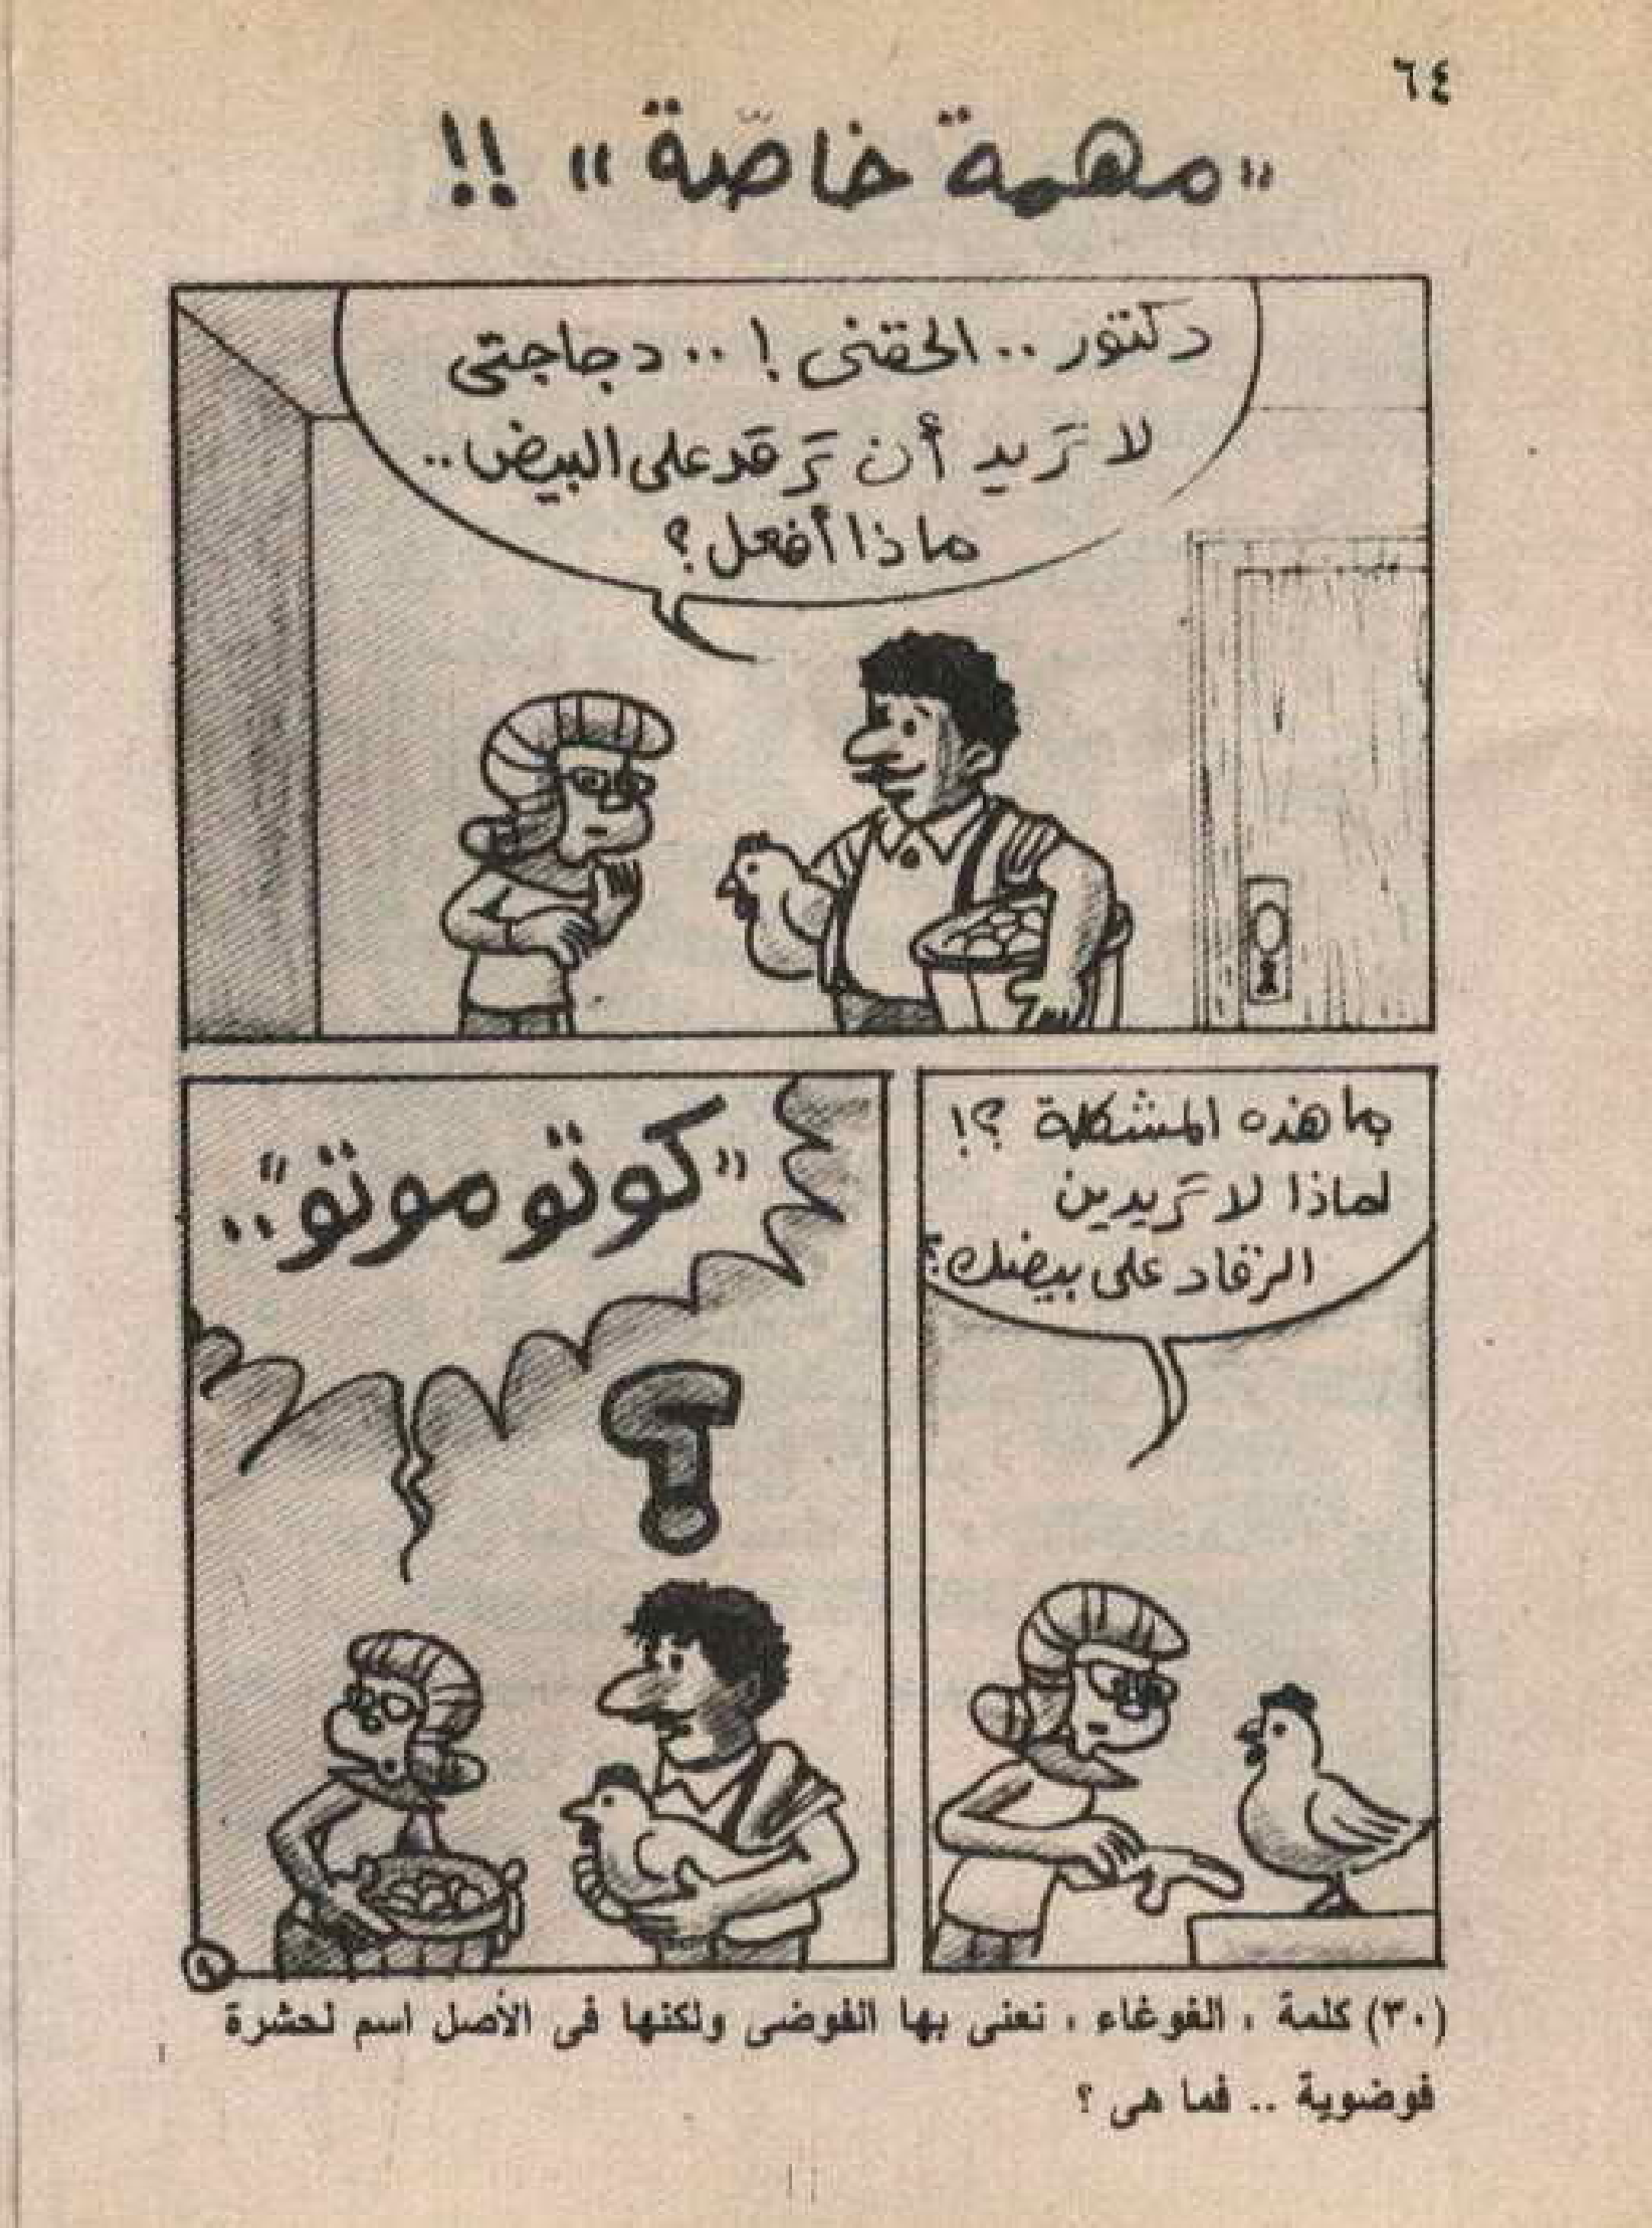 ٦٤
«مهمة خاصّة» !!
دكتور .. الحقنى ! .. دجاجتى
لا تريد أن ترقد على البيض ..
ماذا أفعل ؟
ما هذه المشكلة ؟!
لماذا لا تريدين
الرقاد على بيضك ؟
«كوتو موتو» ..
٩
(٣٠) كلمة ، الغوغاء ، نعنى بها الفوضى ولكنها فى الأصل اسم لحشرة
فوضوية .. فما هى ؟